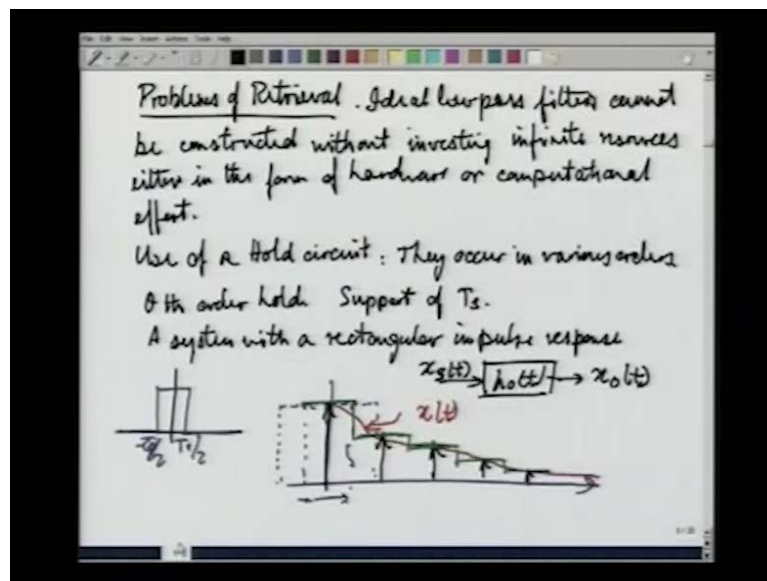 Problems of Retrieval. Ideal lowpass filters cannot
be constructed without investing infinite resources
either in the form of hardware or computational
effort.
Use of a Hold circuit: They occur in various orders
0th order hold. Support of Ts.
A system with a rectangular impulse response
xs(t) h0(t) x0(t)
x(t)
-Ts/2 Ts/2